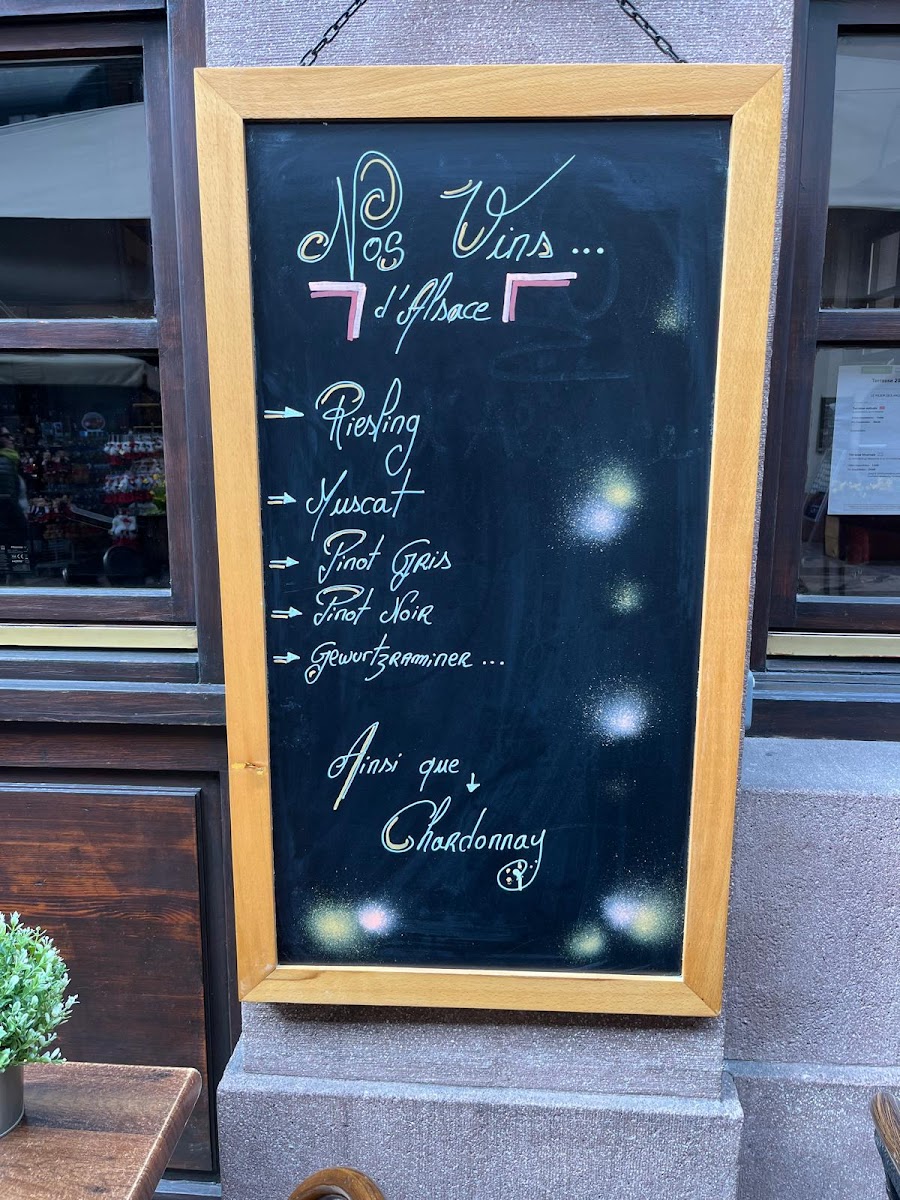 Nos Vins ...
d'Alsace
⇒ Riesling
⇒ Muscat
⇒ Pinot Gris
⇒ Pinot Noir
⇒ Gewurtzraminer ...
Ainsi que
↓
Chardonnay